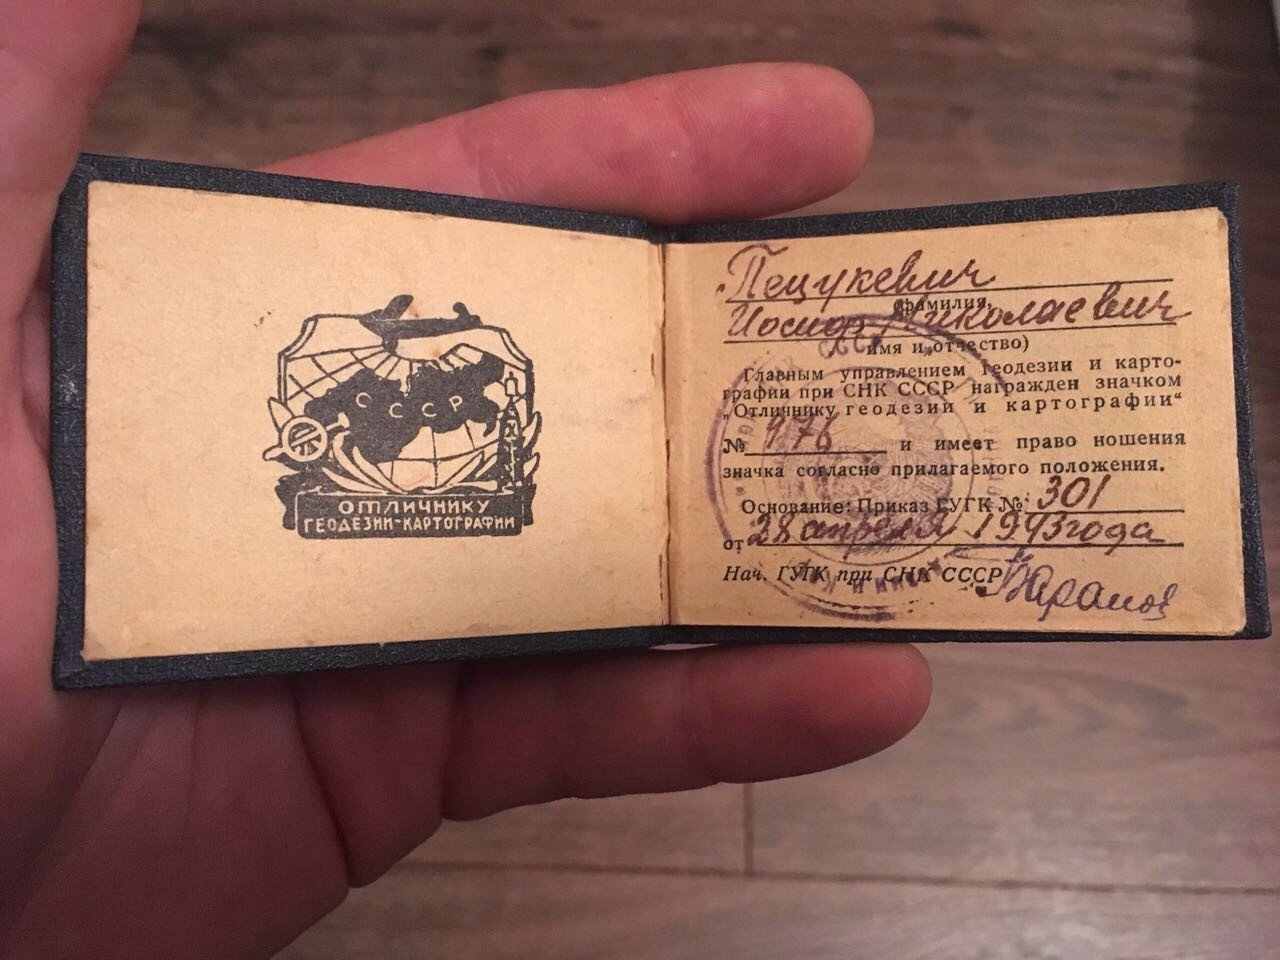 СССР
ОТЛИЧНИКУ
ГЕОДЕЗИИ-КАРТОГРАФИИ
Пецукевич
(фамилия,
Иосиф Николаевич
имя и отчество)
Главным управлением геодезии и карто-
графии при СНК СССР награжден значком
„Отличнику геодезии и картографии“
№ 976 и имеет право ношения
значка согласно прилагаемого положения.
Основание: Приказ ГУГК № 301
от 28 апреля 1943 года
Нач. ГУГК при СНК СССР Баранов